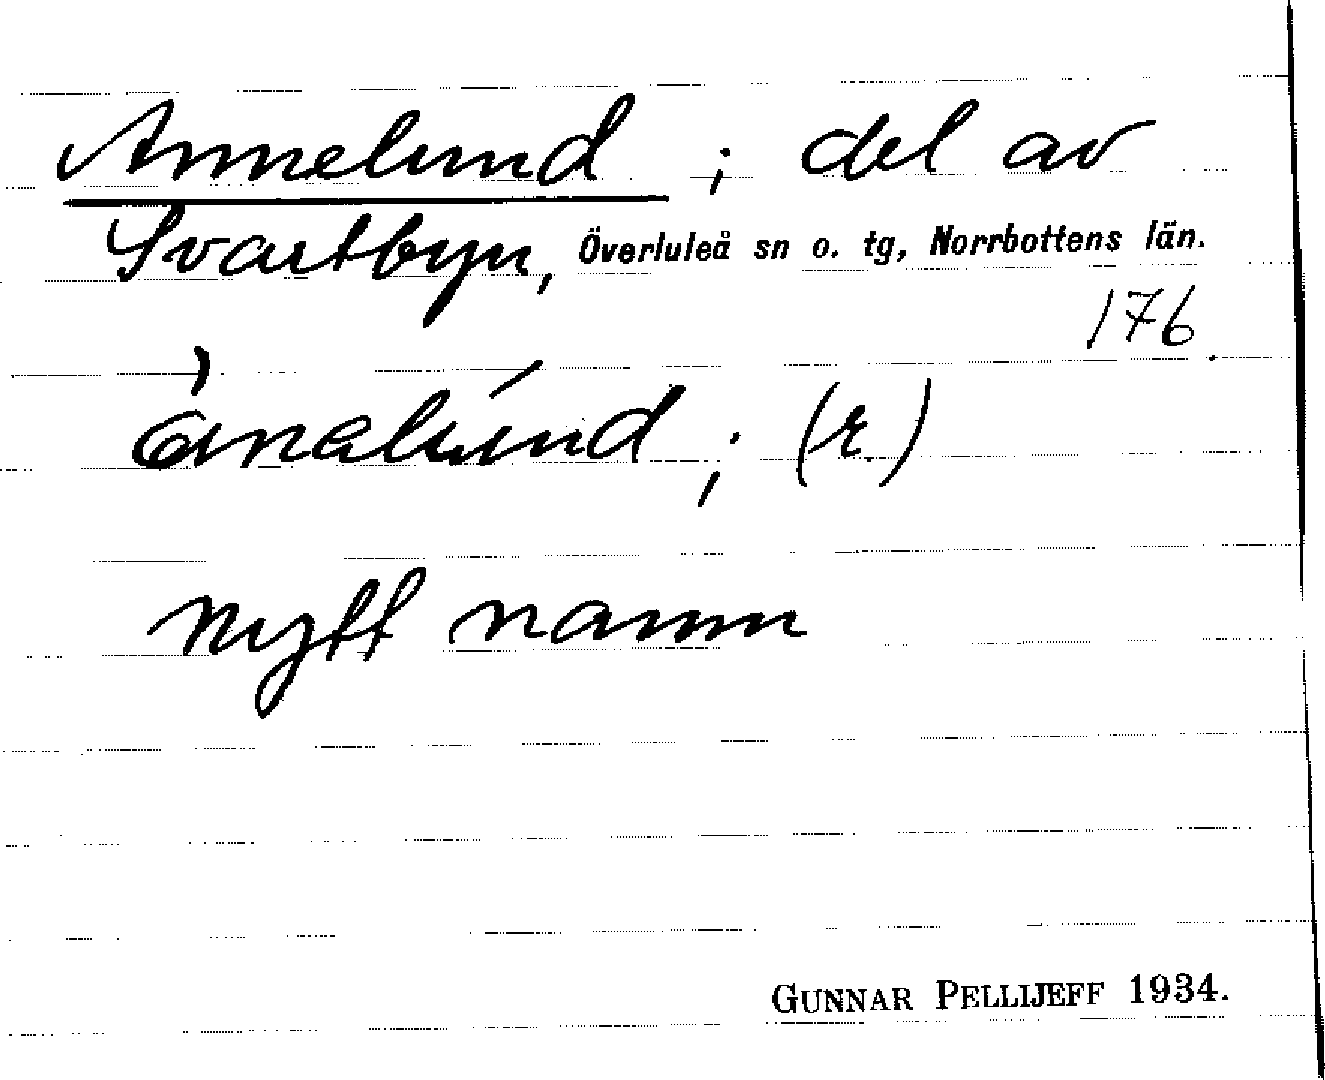 Annelund; del av
Svartbyn, Överluleå sn o. tg, Norrbottens län.
176
; (r.)
nytt namn
GUNNAR PELLIJEFF 1934.